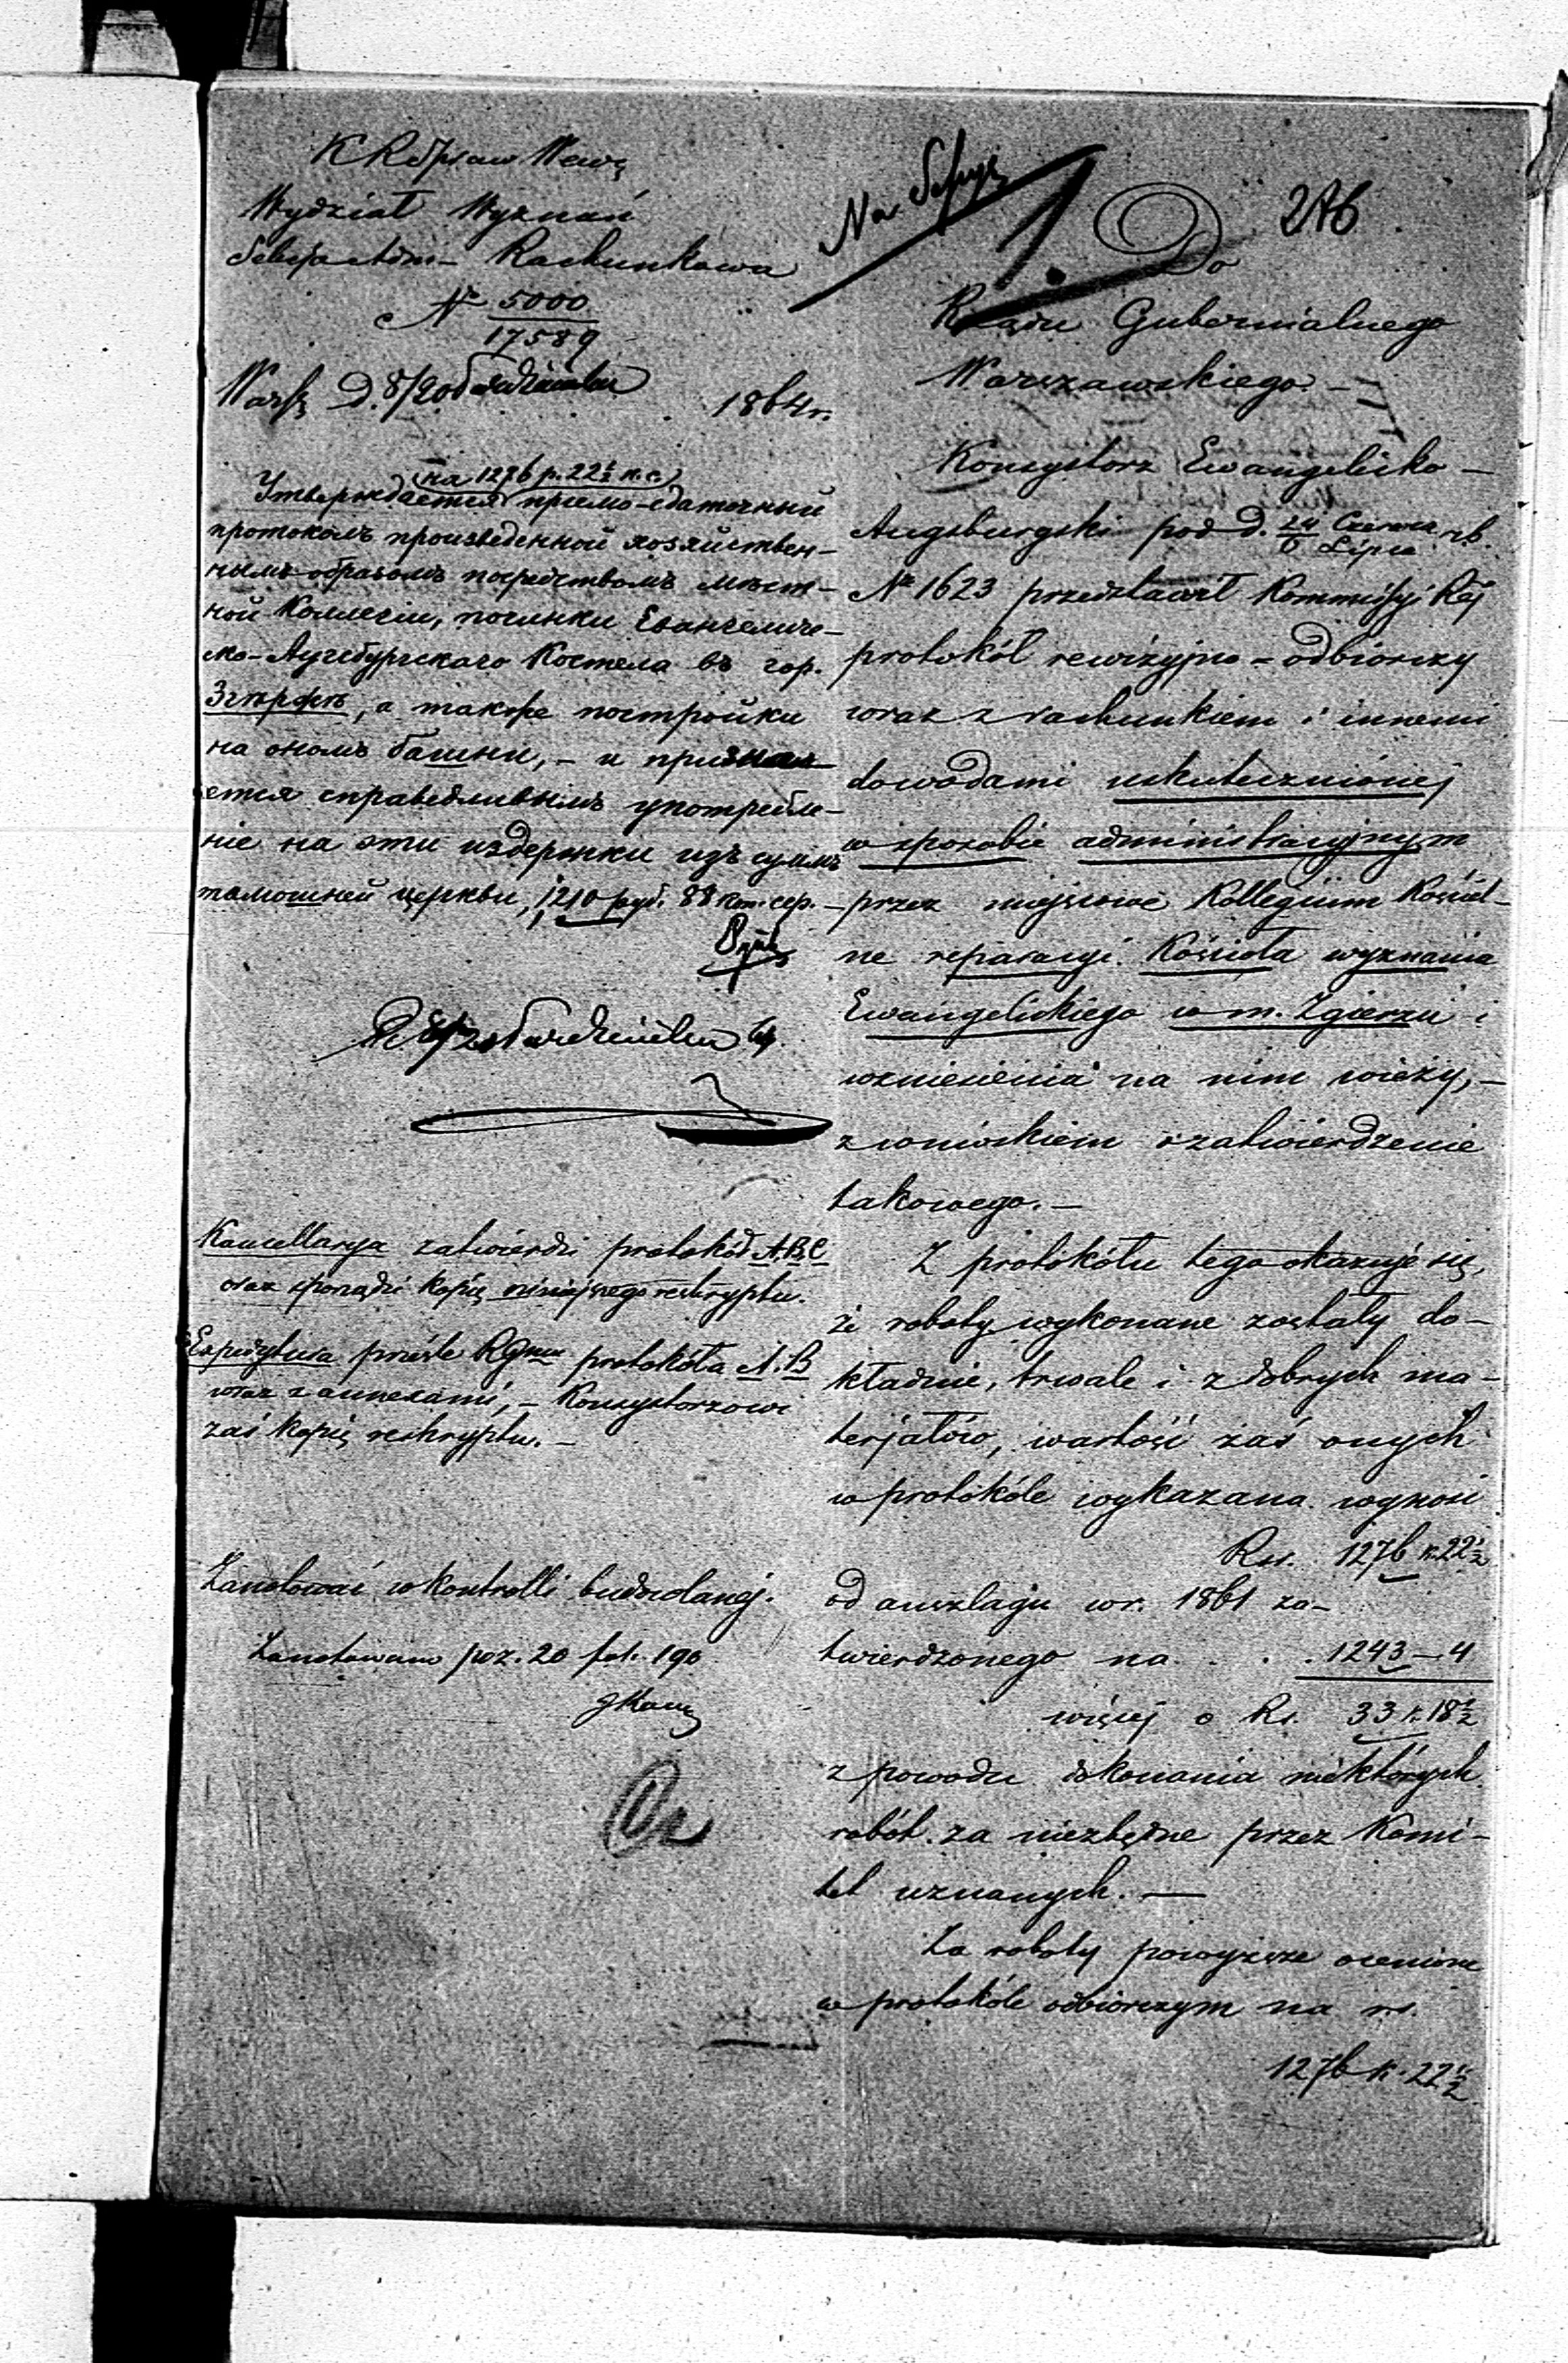 K R Spraw Wewę
Wydział Wyznań
Sekcja Adm- Rachunkowa
№ 5000
17589
Warsz D. 8/20 Października 1864 r.
на 1276 р. 22½ к. с.
Утверждается приемо-сдаточный
протоколъ произведенной хозяйствен-
нымъ образомъ посредствомъ мѣст-
ной Коллегіи, починки Евангеличе-
ско-Аугсбургскаго Костела въ гор.
Згѣржѣ, а также постройки
на ономъ башни, – и призна
ется справедливымъ употребле-
ніе на эти издержки изъ суммъ
тамошней церкви, 1210 руб. 88 коп. сер. –
Kancellarya zatwierdzi protokół A.B.C
oraz sporządzi kopię niniejszego reskryptu.
Expedytura prześle RGmu protokóła A. B
wraz z annexami, – Konsystorzowi
zaś kopię reskryptu. –
Zanotować w kontrolli budowlanej.
Zanotowano poz. 20 fol. 190
Na
1.
276
Do
Rządu Gubernialnego
Warszawskiego –
Konsystorz Ewangelicko –
Augsburgski pod d. 24/6 Czerwca/Lipca r.b.
№ 1623 przedstawił Kommissyi Rząd
protokół rewizyjno – odbiorczy
wraz z rachunkiem i innemi
dowodami uskutecznionej
w sposobie administracyjnym
przez miejscowe Kollegium Kościel-
ne reparacyi Kościoła wyznania
Ewangelickiego w m. Zgierzu i
wzniesienia na nim wieży, –
z wnioskiem o zatwierdzenie
takowego. –
Z protokółu tego okazuje się,
że roboty wykonane zostały do-
kładnie, trwale i z dobrych ma-
terjałów, wartość zaś onych
w protokóle wykazana wynosi
Rsr. 1276 k. 22½
od anszlagu w r. 1861 za-
twierdzonego na . . . 1243 – 4
więcej o Rs. 33 k. 18½
z powodu dokonania niektórych
robót za niezbędne przez Komi-
tet uznanych. —
Za roboty powyższe ocenione
w protokóle odbiorczym na rs.
1276 k. 22½